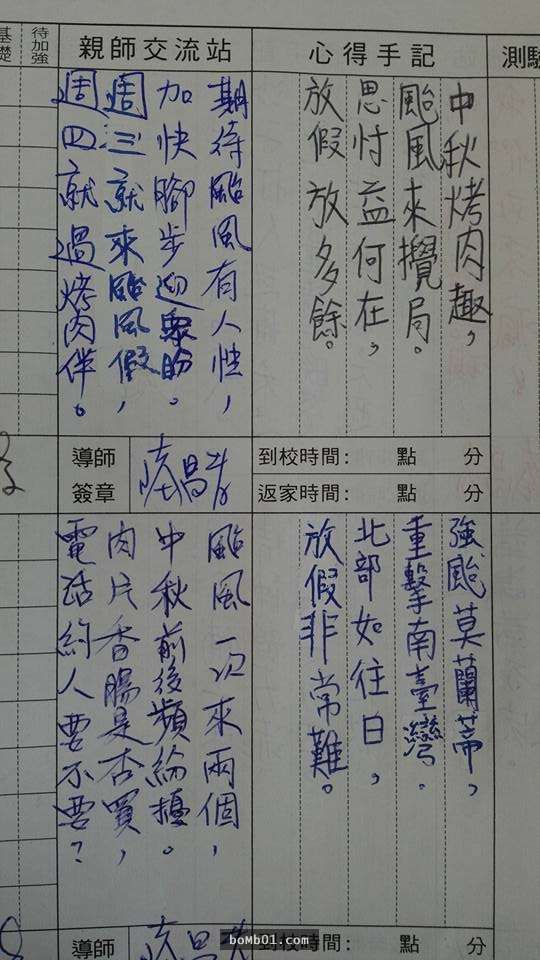 待加強
基礎
親師交流站
心得手記
測驗
中秋烤肉趣，
颱風來攪局。
思忖益何在，
放假放多餘。
期待颱風有人性，
加快腳步迎眾盼。
週三就來颱風假，
週四就過烤肉伴。
導師
簽章
到校時間： 點 分
返家時間： 點 分
強颱莫蘭蒂，
重擊南臺灣。
北部如往日，
放假非常難。
颱風一次來兩個，
中秋前後頻紛擾。
肉片香腸是否買，
電話約人要不要？
導師
到校時間： 點 分
boMb01.com